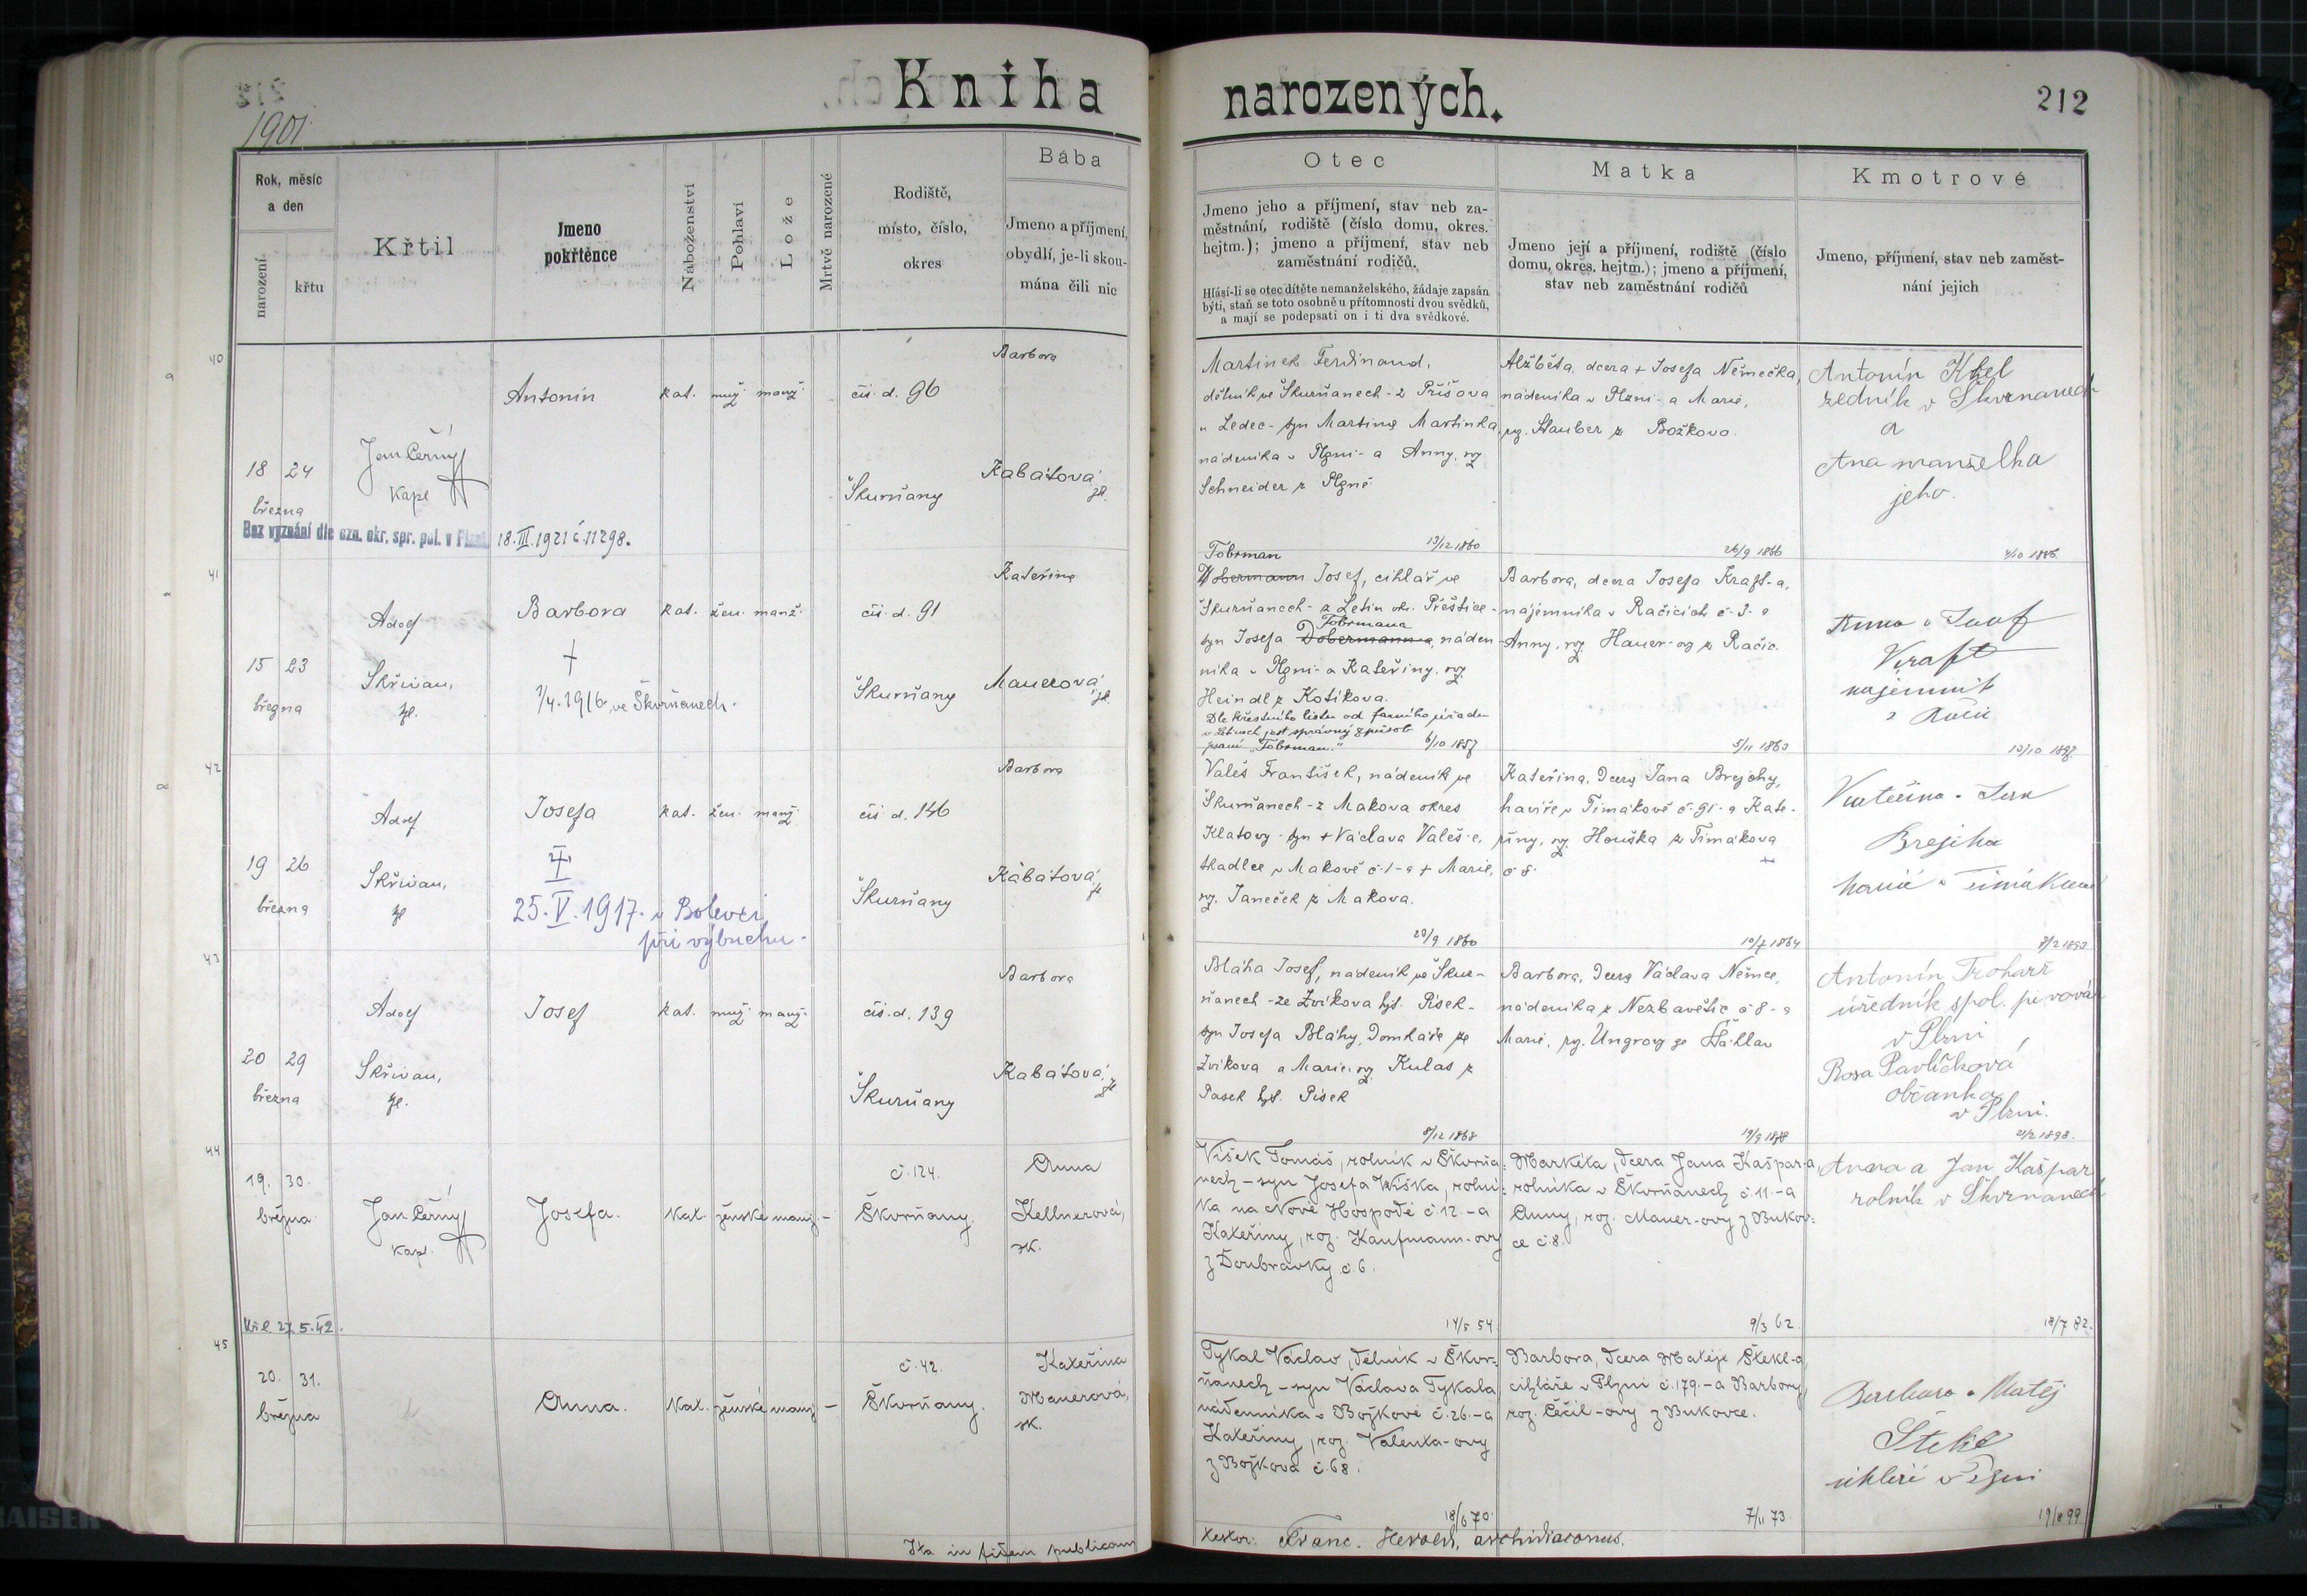 Kniha narozených.
212
1901.
Rok, měsíc
a den
narození
křtu
Křtil
Jmeno
pokřtěnce
Náboženství
Pohlaví
Lože
Mrtvě narozené
Rodiště,
místo, číslo,
okres
Bába
Jmeno a příjmení,
obydlí, je-li skou-
mána čili nic
Otec
Jmeno jeho a příjmení, stav neb za-
městnání, rodiště (číslo domu, okres.
hejtm.); jmeno a příjmení, stav neb
zaměstnání rodičů.
Hlásí-li se otec dítěte nemanželského, žádaje zapsán
býti, staň se toto osobně u přítomnosti dvou svědků,
a mají se podepsati on i ti dva svědkové.
Matka
Jmeno její a příjmení, rodiště (číslo
domu, okres. hejtm.); jmeno a příjmení,
stav neb zaměstnání rodičů
Kmotrové
Jmeno, příjmení, stav neb zaměst-
nání jejich
40
18 24
března
Jan Černý
Kapl
Antonín
kat. muž. manž.
čís. d. 96
Škurňany
Barbora
Kabátová
zk.
Bez vyznání dle ozn. okr. spr. pol. v Plzni 18.III.1921 č.11298.
Martinek Ferdinand,
dělník ve Škurňanech - z Příšova
u Ledec - syn Martina Martinka,
nádeníka v Plzni - a Anny, roz.
Schneider z Plzně
13/12 1860
Alžběta, dcera + Josefa Němečka,
nádeníka v Plzni - a Marie,
roz. Stauber z Božkova.
26/9 1866
Antonín Kbel
ředník v Škvrnanech
a
Ana manželka
jeho.
41
15 23
března
Adolf
Skřivan,
Barbora
kat. žen. manž.
†
1/4. 1916. ve Škvrňanech.
čís. d. 91
Škurňany
Kateřina
Mauerová
zk.
Tobrman
Dobermann Josef, cihlář ve
Škurňanech - z Letin okr. Přeštice -
Tobrmana
syn Josefa Dobermanna, náden-
níka v Plzni - a Kateřiny, roz.
Heindl z Kotíkova.
Dle křestního listu od farního úřadu
v Letinech jest správný způsob
psaní „Tobrman."
6/10 1857
Barbora, dcera Josefa Kraft-a,
nájemníka v Račicích č. 3 - a
Anny, roz. Hauer-ov z Račic.
5/11 1860
Anna a Josef
Kraft
nájemník
z Račic
10/10 1897.
42
19 26
března
Adolf
Skřivan,
Josefa
kat. žen. manž.
†
25. V. 1917. v Bolevci
při výbuchu.
čís. d. 146
Škurňany
Barbora
Kabátová
Valeš František, nádeník ve
Škurňanech - z Makova okres
Klatovy - syn + Václava Valeš-e,
tkadlce v Makově č. 1 - a + Marie,
roz. Janeček z Makova.
20/9 1860
Kateřina, dcera Jana Brejchy,
havíře v Timákově č. 91 - a Kate-
řiny, roz. Houška z Timákova
č. 8.
10/7 1864
Kateřina a Jan
Brejcha
havíř v Timákově
8/2 1890
43
20 29
března
Adolf
Skřivan,
Josef
kat. muž. manž.
čís. d. 139
Škurňany
Barbora
Kabátová,
zk.
Bláha Josef, nádeník ve Škur-
ňanech - ze Zvíkova hjt. Písek -
syn Josefa Bláhy, domkáře ze
Zvíkova a Marie, roz. Kulas z
Pasek hjt. Písek
8/12 1868
Barbora, dcera Václava Němce,
nádeníka z Nezbavětic č. 8 - a
Marie, roz. Ungrovy ze Šťáhlav
Antonín Troharz
úředník spol. pivovár
v Plzni
Rosa Pavlíčková
občanka
v Plzni.
44
19. 30.
března
Jan Černý
Kapl.
Josefa.
Kat. ženské manž. -
č. 124.
Škvrňany.
Anna
Kellnerová,
zk.
Víšek Tomáš, rolník v Škvrňa-
nech - syn Josefa Víška, rolní-
ka na Nové Hospodě č. 12. - a
Kateřiny, roz. Kaufmann-ovy
z Doubravky č. 6.
14/5 54.
Markéta, dcera Jana Kašpar-a,
rolníka v Škvrňanech č. 11. - a
Anny, roz. Mauer-ovy z Bukov-
ce č. 8.
9/3 62.
Anna a Jan Kašpar
rolník v Škvrnanech
18/7 82.
45
20. 31.
března
Anna.
Kat. ženské manž. -
č. 42.
Škvrňany.
Kateřina
Mauerová,
zk.
Tykal Václav, dělník v Škvr-
ňanech - syn Václava Tykala
nádenníka v Božkově č. 26. - a
Kateřiny, roz. Valenta-ovy
z Božkova č. 68.
18/6 70.
Barbora, dcera Matěje Štekl-a,
cihláře v Plzni č. 179. - a Barbory,
roz. Čečil-ovy z Bukovce.
7/11 73.
Barbora a Matěj
Štekl
cihlář v Plzni
19/8 99
Ita in fidem publicam
testor: Franc. Herold, archidiaconus.